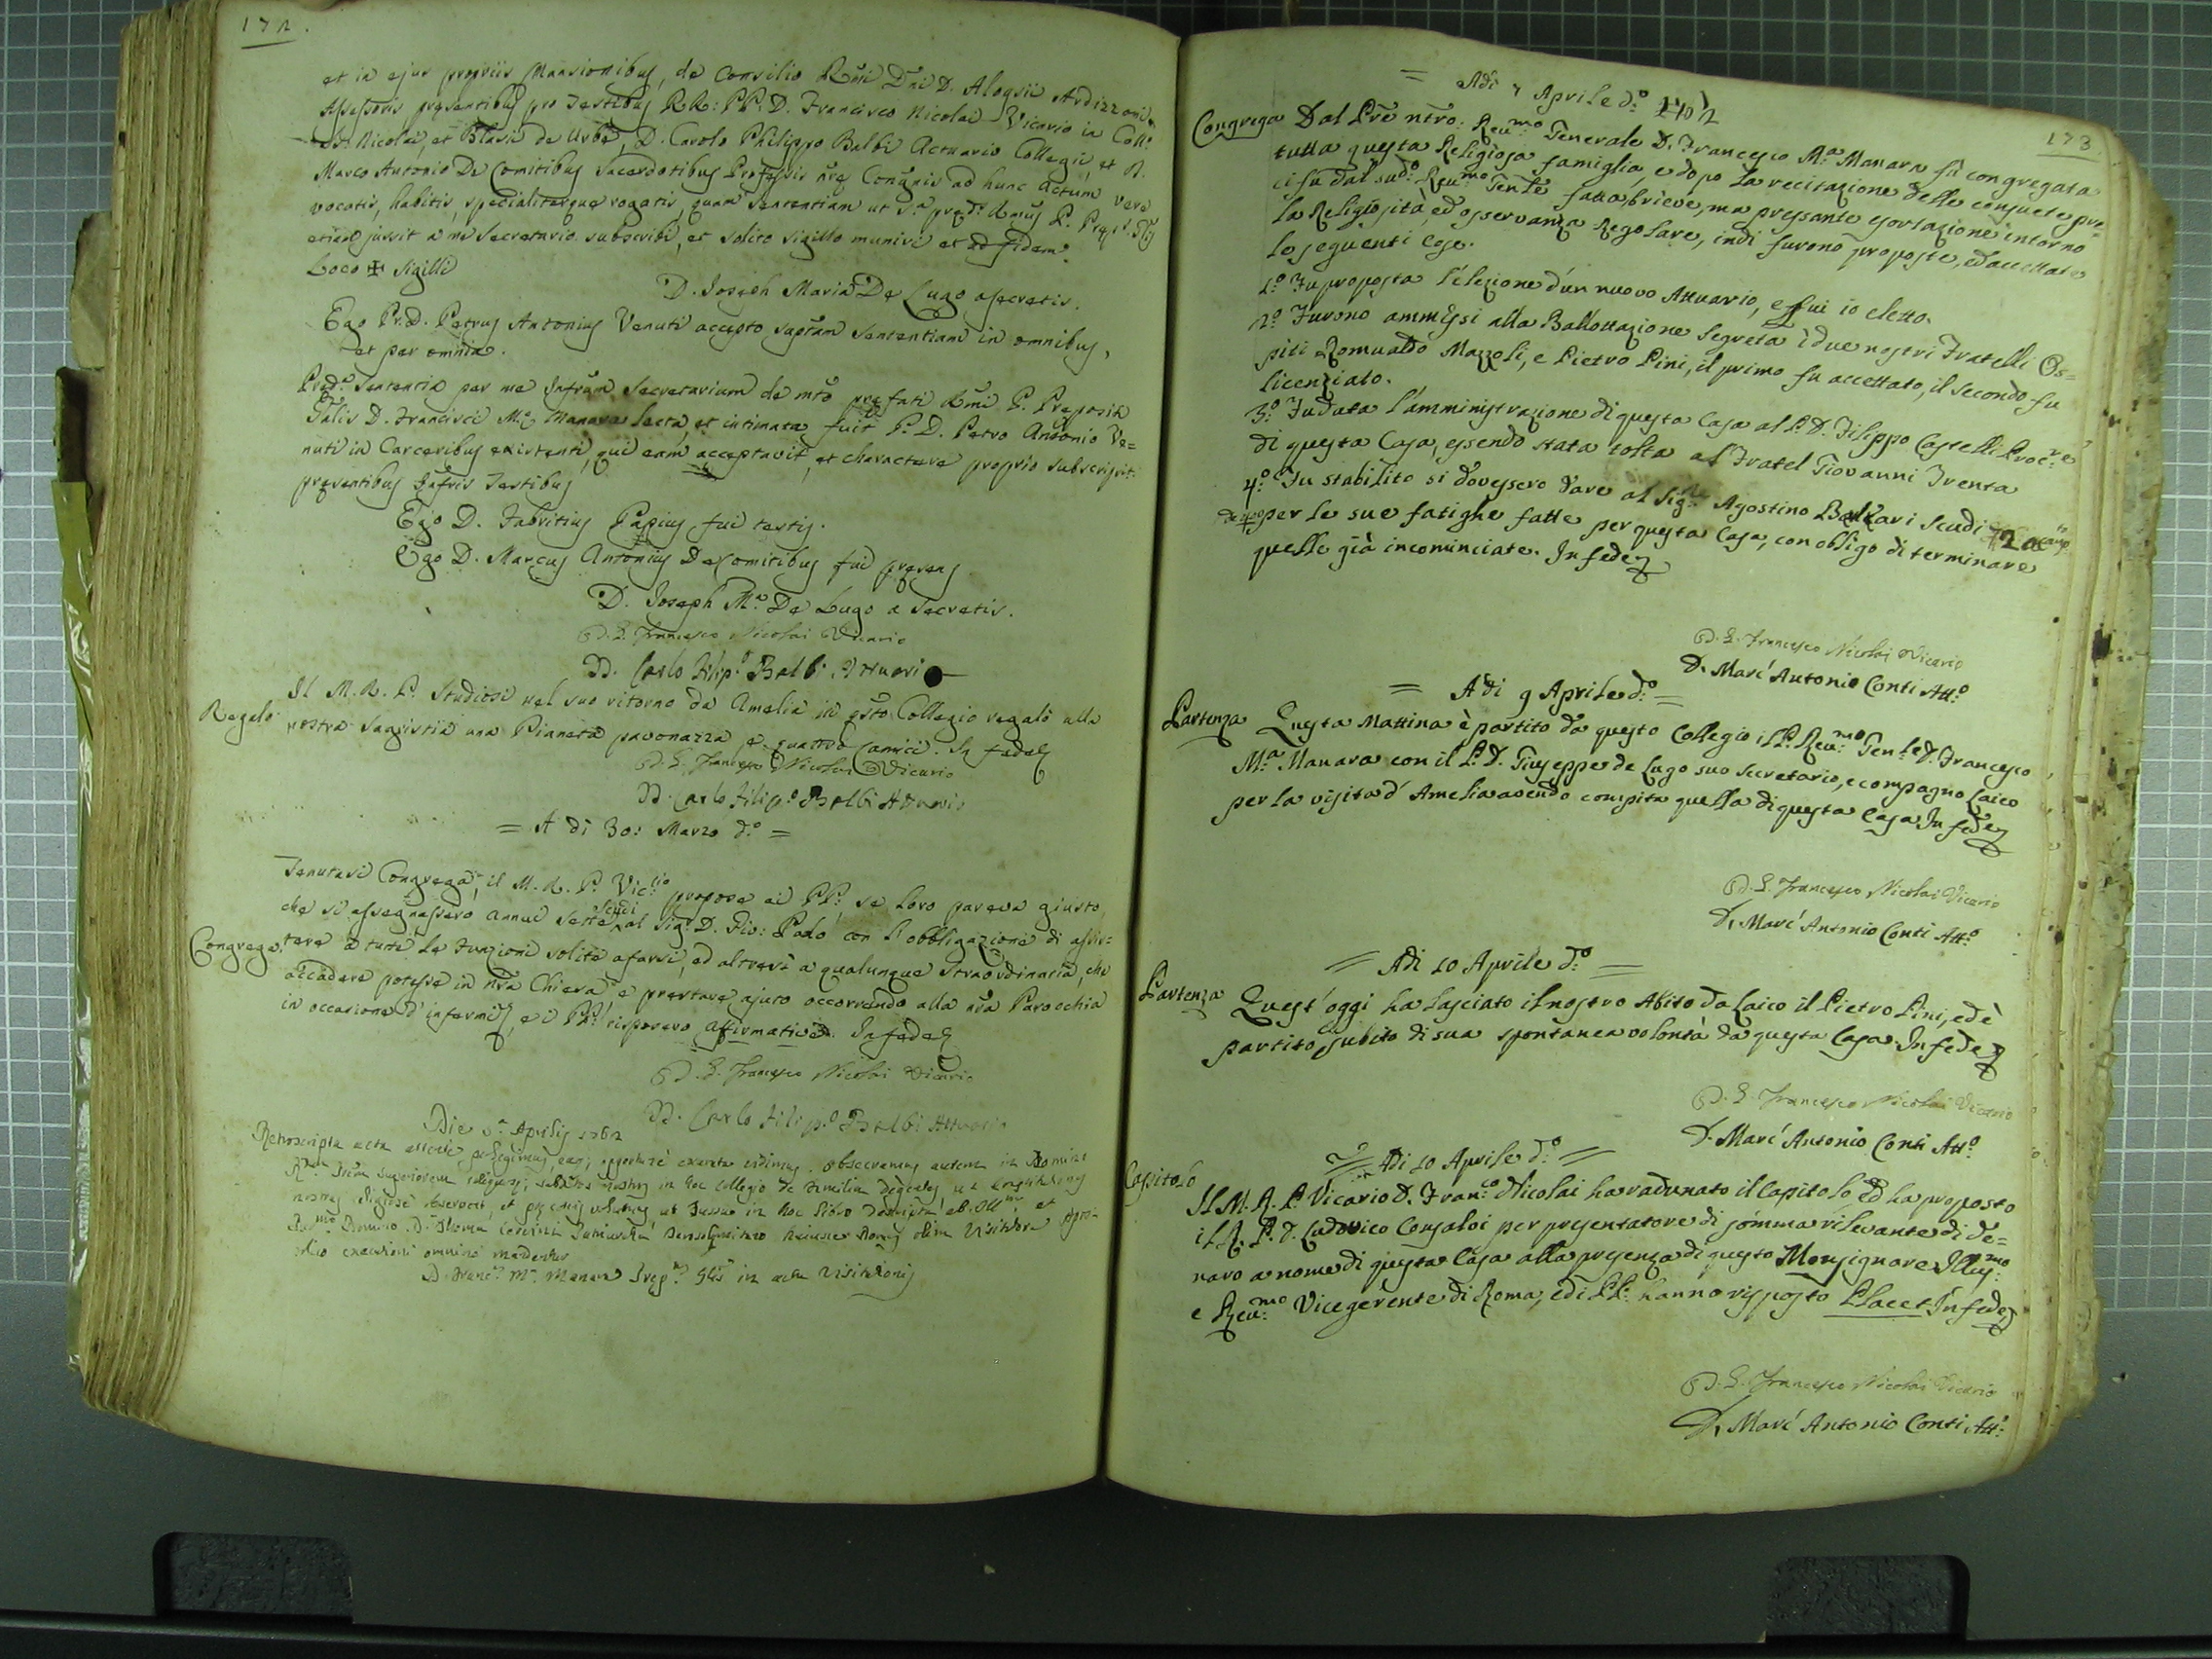 172.
et in ejus propriis Mansionibus, de Consilio Rmi Dni D. Aloysii Ardizzoni
Assessoris presentibus pro Testibus RR: PP: D. Francisco Nicolai Vicario in Coll.
Sti Nicolai, et Blasii de Urbe, D. Carolo Philippo Balbi Actuario Collegii, et D.
Marco Antonio De Comitibus Sacerdotibus Professis nrę Congnis ad hunc actum
vocatis, habitis, specialiterque rogatis, quam sententiam ut s.a pred.s Rmus P. Prep.s Glis
etiam jussit a me Secretario subscribi, et solito sigillo muniri et ad fidem.
Loco ✠ Sigilli
D. Joseph Maria De Lugo a secretis.
Ego Pr. D. Petrus Antonius Venuti accepto suptam Sententiam in omnibus,
et per omnia.
Pred.a Sententia per me infrum Secretarium de mto prefati Rmi P. Prepositi
Gnlis D. Francisci M.ę Manara lecta, et intimata fuit P. D. Petro Antonio Ve=
nuti in Carceribus existenti, qui eam acceptavit, et charactere proprio subscripsit
presentibus infris Testibus
Ego D. Fabritius Papius fui testis.
Ego D. Marcus Antonius De Comitibus fui presens
D. Joseph M.a De Lugo a secretis.
D. G. Francesco Nicolai Vicario
D. Carlo Filip.o Balbi Attuario
Regalo
Il M. R. P. Studiosi nel suo ritorno da Amelia in qsto Collegio regalò alla
nostra Sagristia una Pianeta pavonazza e quattro Camici. In fede
D. G. Francesco Nicolai Vicario
D. Carlo Filip.o Balbi Attuario
= A dì 30: Marzo d.o =
Tenutasi Congrega, il M. R. P. Vic.rio propose ai PP: se loro pareva giusto,
che si assegnassero annui sette scudi al Sig.r D. Gio: Palo con l'obbligazione di assis=
Congrega
tere a tutte le Funzioni solite a farsi, ed altresì a qualunque straordinaria, che
accadere potesse in nra Chiesa e prestare ajuto occorrendo alla nra Parocchia
in occasione d'infermi, e i PP: risposero affirmative. In fede
D. G. Francesco Nicolai Vicario
D. Carlo Filip.o Balbi Attuario
Die 5.a Aprilis 1762
Retroscripta acta attente perlegimus, eaq; opportune exarata vidimus. Obsecramus autem in Domino
nostras religiose observent, et in hoc libro descripta ab Ill.mo et
D. Franc.s M.a Manara Prep.s Glis in actu Visitationis
173
= Adì 7 Aprile d.o 1762
Congrega Dal Pre nro: Reu.mo Generale D. Francesco M.a Manara fù congregata
tutta questa Religiosa famiglia, e dopo la recitazione delle consuete pre=
ci fù dal sud.o Reu.mo Gen.le fatta brieve, ma pressante esortazione intorno
la Religiosità, ed osservanza Regolare, indi furono proposte, ed accettate
le seguenti cose.
1.o Fu proposta l'elezione d'un nuovo Attuario, e fui io eletto.
2.o Furono ammessi alla Ballottazione segreta i due nostri Fratelli Os=
piti Romualdo Mazzoli, e Pietro Pini, il primo fu accettato, il secondo fu
licenziato.
3.o Fu data l'amministrazione di questa Casa al P. D. Filippo Castelli Proc.re
di questa Casa, essendo stata tolta al Fratel Giovanni Trenta
4.o Fu stabilito si dovessero dare al Sig.r Agostino Baldari scudi
per le sue fatighe fatte per questa Casa, con obligo di terminare
quelle già incominciate. In fede
D. G. Francesco Nicolai Vicario
D. Marc'Antonio Conti Att.o
= Adi 9 Aprile d.o =
Partenza Questa Mattina è partito da questo Collegio il P. Reu.mo Gen.le D. Francesco
M.a Manara con il P. D. Giuseppe de Lugo suo Secretario, e compagno Laico
per la visita d'Amelia avendo compita quella di questa Casa In fede
D. G. Francesco Nicolai Vicario
D. Marc'Antonio Conti Att.o
= Adi 10 Aprile d.o =
Partenza Quest'oggi ha lasciato il nostro Abito da Laico il Pietro Pini, ed è
partito subito di sua spontanea volontà da questa Casa. In fede
D. G. Francesco Nicolai Vicario
D. Marc'Antonio Conti Att.o
= Adi 10 Aprile d.o =
Capitolo
Il M. R. P. Vicario D. Fran.co Nicolai ha radunato il Capitolo ed ha proposto
il R. P. D. Ludovico Consaloi per presentatore di somma rilevante di de=
naro a nome di questa Casa alla presenza di questo Monsignore Illus.mo
e Reu.mo Vicegerente di Roma, ed i PP. hanno risposto Placet In fede
D. G. Francesco Nicolai Vicario
D. Marc'Antonio Conti Att.o